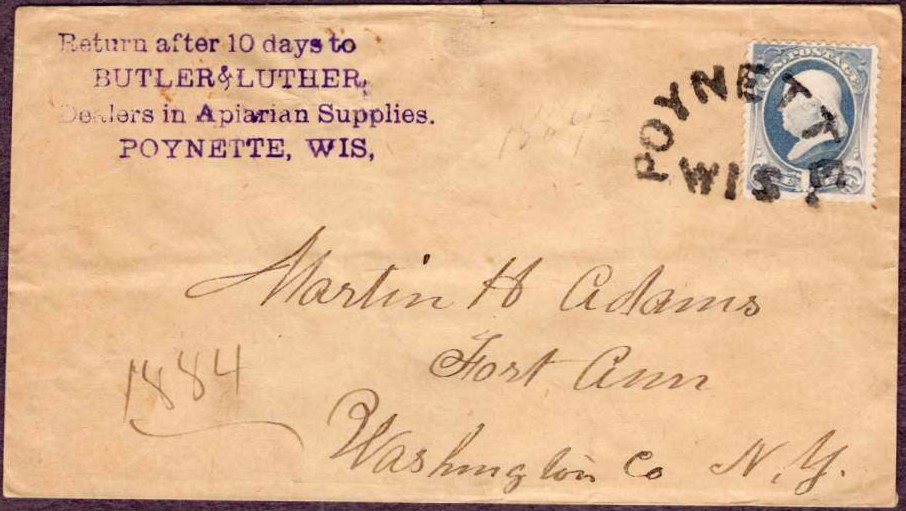 Return after 10 days to
BUTLER & LUTHER,
Dealers in Apiarian Supplies.
POYNETTE, WIS,
U.S. POSTAGE
POYNETTE
WIS
1884
Martin H Adams
Fort Ann
Washington Co N.Y.
1884